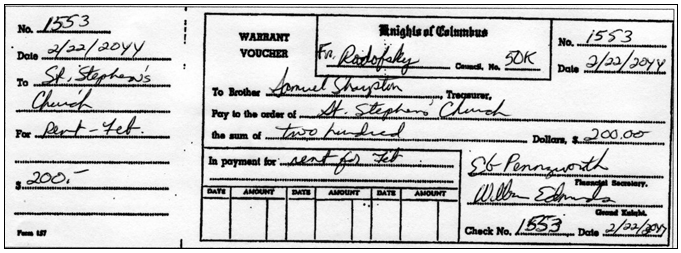 No. 1553
Date 2/22/2044
To St. Stephen's
Church
For Rent-Feb.
$ 200.-
Form 157
WARRANT
VOUCHER
Knights of Columbus
Fr. Rodofsky
Council. No. 50K
No. 1553
Date 2/22/2044
To Brother Samuel Sharpton Treasurer,
Pay to the order of St. Stephens' Church
the sum of two hundred Dollars, $ 200.00
In payment for rent for Feb
DATE AMOUNT DATE AMOUNT DATE AMOUNT
EG Pennyworth
Financial Secretary.
Edmunds
Grand Knight.
Check No. 1553 Date 2/22/2044